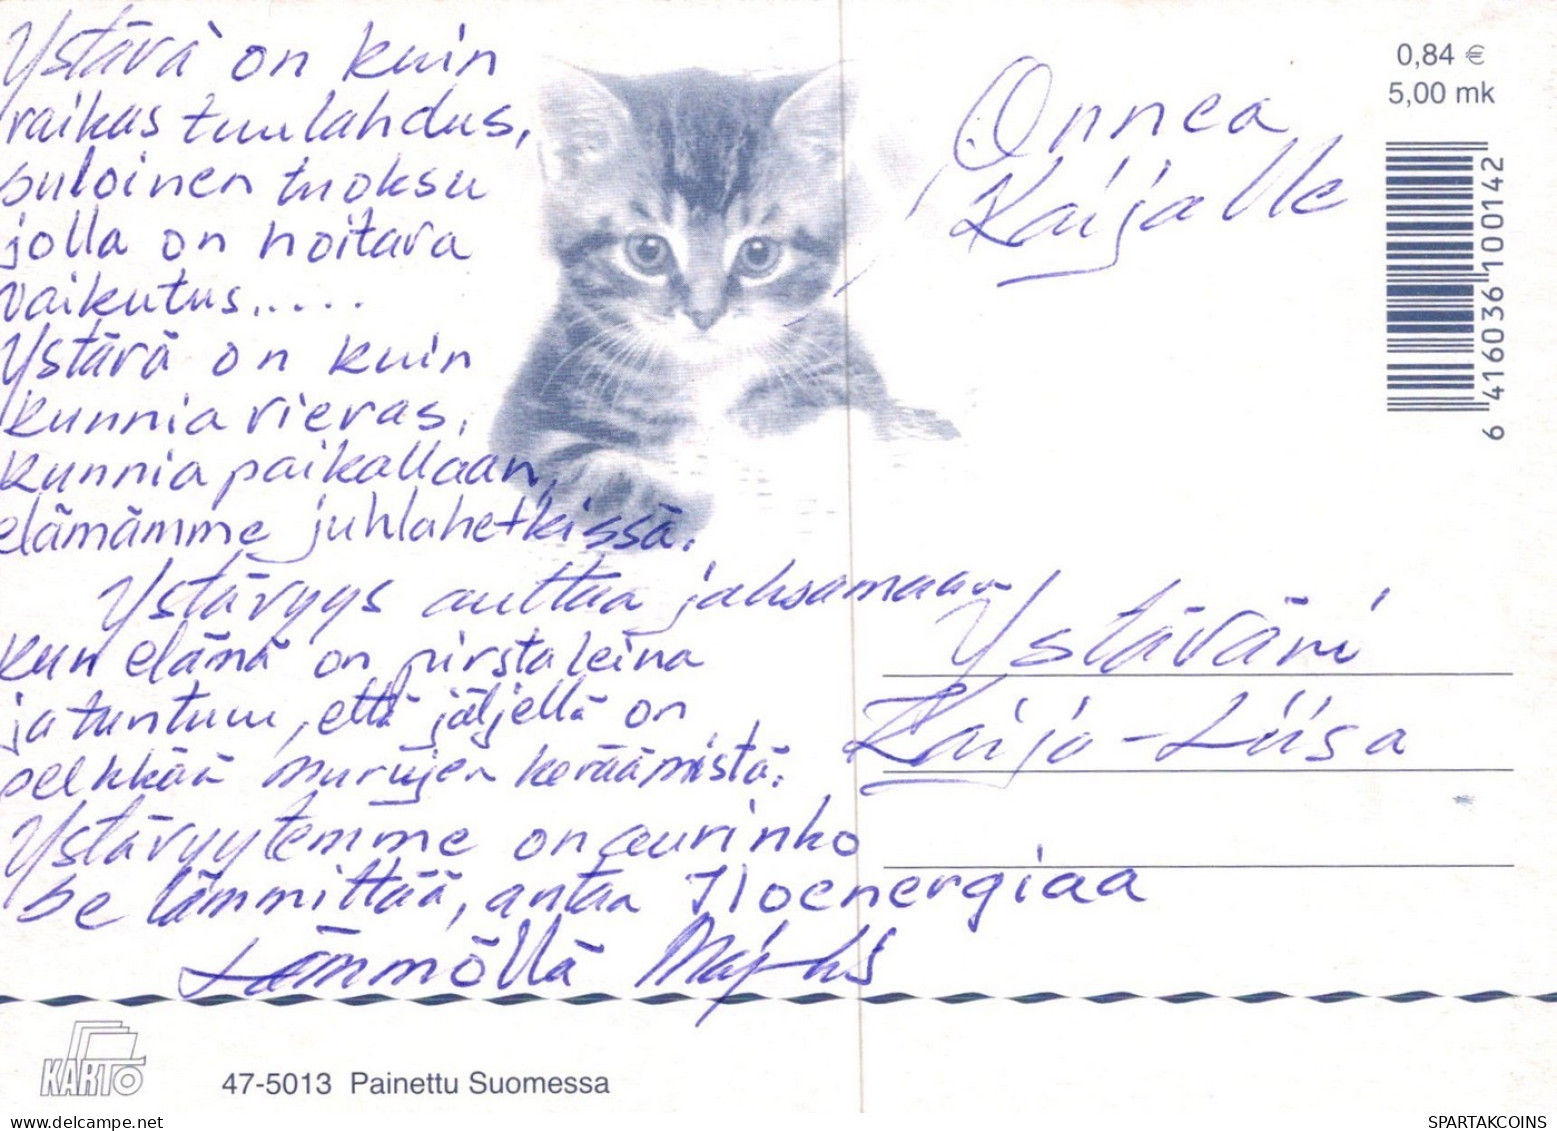 Ystävä on kuin
raikas tuulahdus,
suloinen tuoksu
jolla on hoitava
vaikutus.....
Ystävä on kuin
kunnia vieras,
kunnia paikallaan,
elämämme juhlahetkissä.
Ystävyys auttaa jaksamaan
kun elämä on pirstaleina
ja tuntuu, että jäljellä on
pelkkää murujen keräämistä.
Ystävyytemme on aurinko
se lämmittää, antaa Iloenergiaa
Lämmöllä
Onnea
Kaijalle
Ystäväni
Kaija-Liisa
0,84 €
5,00 mk
6 416036 100142
KARTO
47-5013 Painettu Suomessa
SPARTAKCOINS